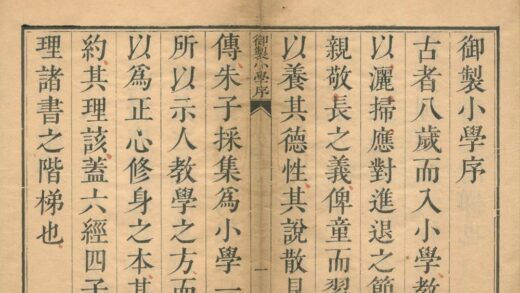 御製小學序
古者八歲而入小學教
以灑掃應對進退之節
親敬長之義俾童而習
以養其德性其說散見
御製小學序
一
傳朱子採集爲小學一
所以示人教學之方而
以爲正心修身之本其
約其理該蓋六經四子
理諸書之階梯也